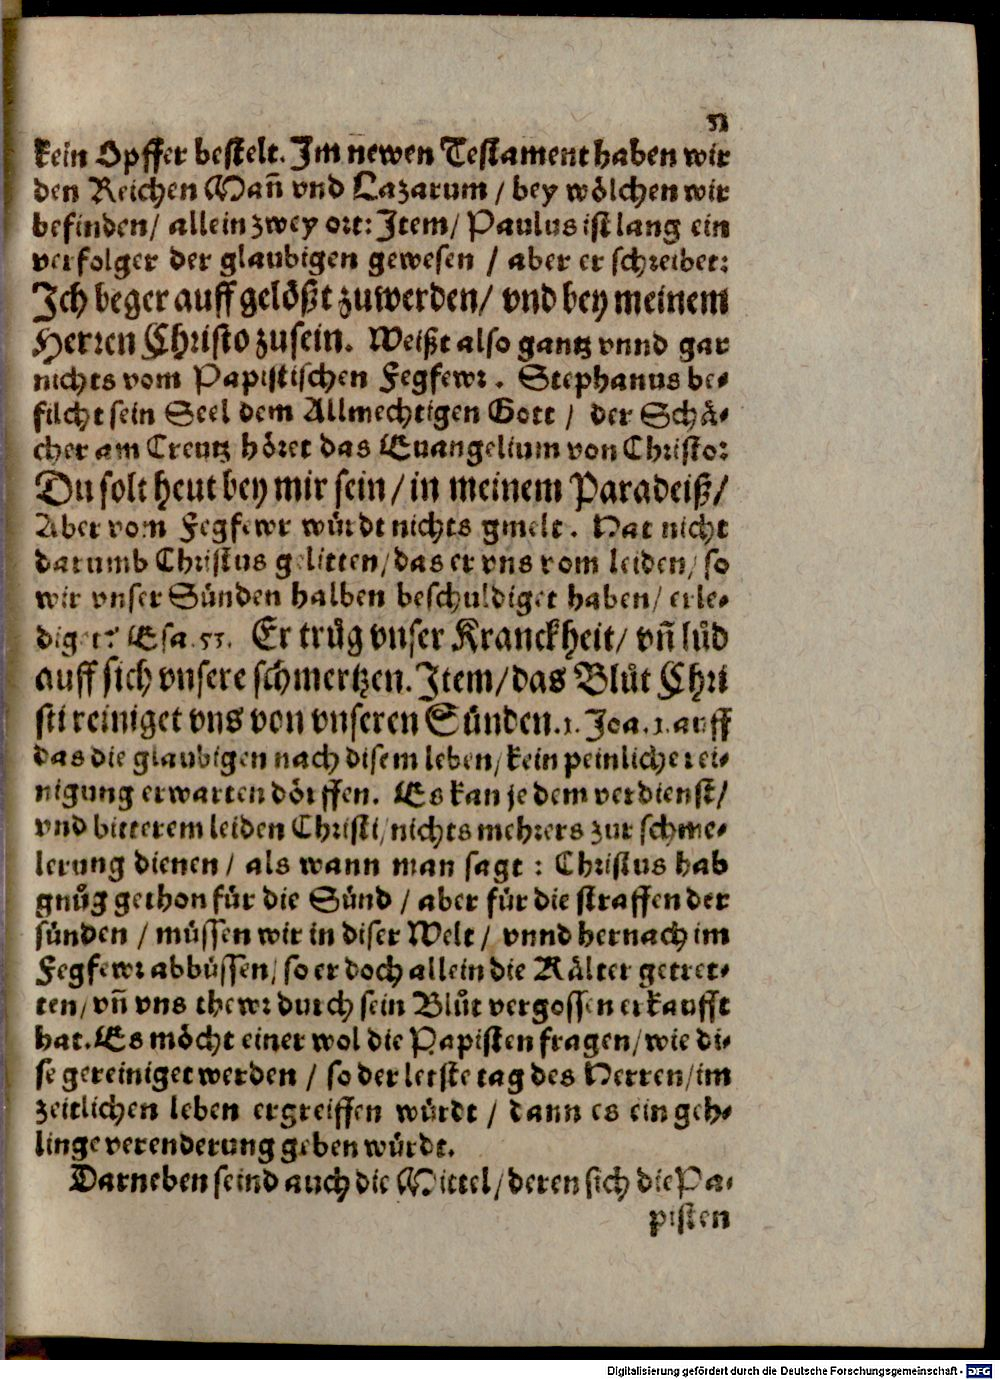 52
kein Opffer bestelt. Im newen Testament haben wir
den Reichen Mañ vnd Lazarum / bey wölchen wir
befinden / allein zwey ort: Item / Paulus ist lang ein
verfolger der glaubigen gewesen / aber er schreibet:
Ich beger auffgelößt zuwerden / vnd bey meinem
Herren Christo zusein. Weißt also gantz vnnd gar
nichts vom Papistischen Fegfewr. Stephanus be-
filcht sein Seel dem Allmechtigen Gott / der Schä-
cher am Creutz höret das Euangelium von Christo:
Du solt heut bey mir sein / in meinem Paradeiß /
Aber vom Fegfewr würdt nichts gmelt. Hat nicht
darumb Christus gelitten / das er vns vom leiden / so
wir vnser Sünden halben beschuldiget haben / erle-
diget? Esa. 53. Er trůg vnser Kranckheit / vñ lůd
auff sich vnsere schmertzen. Item / das Blůt Chri
sti reiniget vns von vnseren Sünden. 1. Joa. 1. auff
das die glaubigen nach disem leben / kein peinliche rei-
nigung erwarten dörffen. Es kan je dem verdienst /
vnd bitterem leiden Christi / nichts mehrers zur schme-
lerung dienen / als wann man sagt : Christus hab
gnůg gethon für die Sünd / aber für die straffen der
sünden / müssen wir in diser Welt / vnnd hernach im
Fegfewr abbüssen / so er doch allein die Kälter getret-
ten / vñ vns thewr durch sein Blůt vergossen erkaufft
hat. Es möcht einer wol die Papisten fragen / wie di-
se gereiniget werden / so der letste tag des Herren / im
zeitlichen leben ergreiffen würdt / dann es ein geh-
linge verenderung geben würdt.
Darneben seind auch die Mittel / deren sich die Pa-
pisten
Digitalisierung gefördert durch die Deutsche Forschungsgemeinschaft - DFG